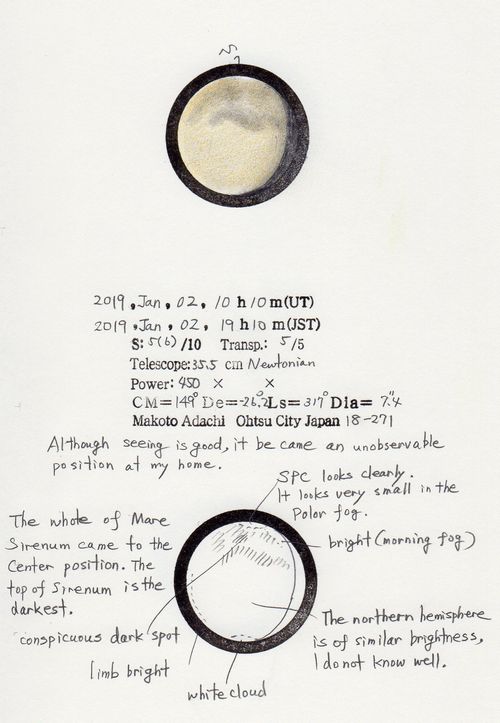 S
2019, Jan, 02, 10 h 10 m(UT)
2019, Jan, 02, 19 h 10 m(JST)
S: 5(6) /10 Transp.: 5/5
Telescope: 35.5 cm Newtonian
Power: 450 × ×
CM=149° De=-26.2 Ls=317° Dia= 7.4"
Makoto Adachi Ohtsu City Japan 18-271
Although seeing is good, it be came an unobservable
position at my home.
SPC looks clearly.
It looks very small in the
Polor fog.
bright (morning fog)
The whole of Mare
Sirenum came to the
Center position. The
top of Sirenum is the
darkest.
conspicuous dark spot
limb bright
white cloud
The northern hemisphere
is of similar brightness,
I do not know well.